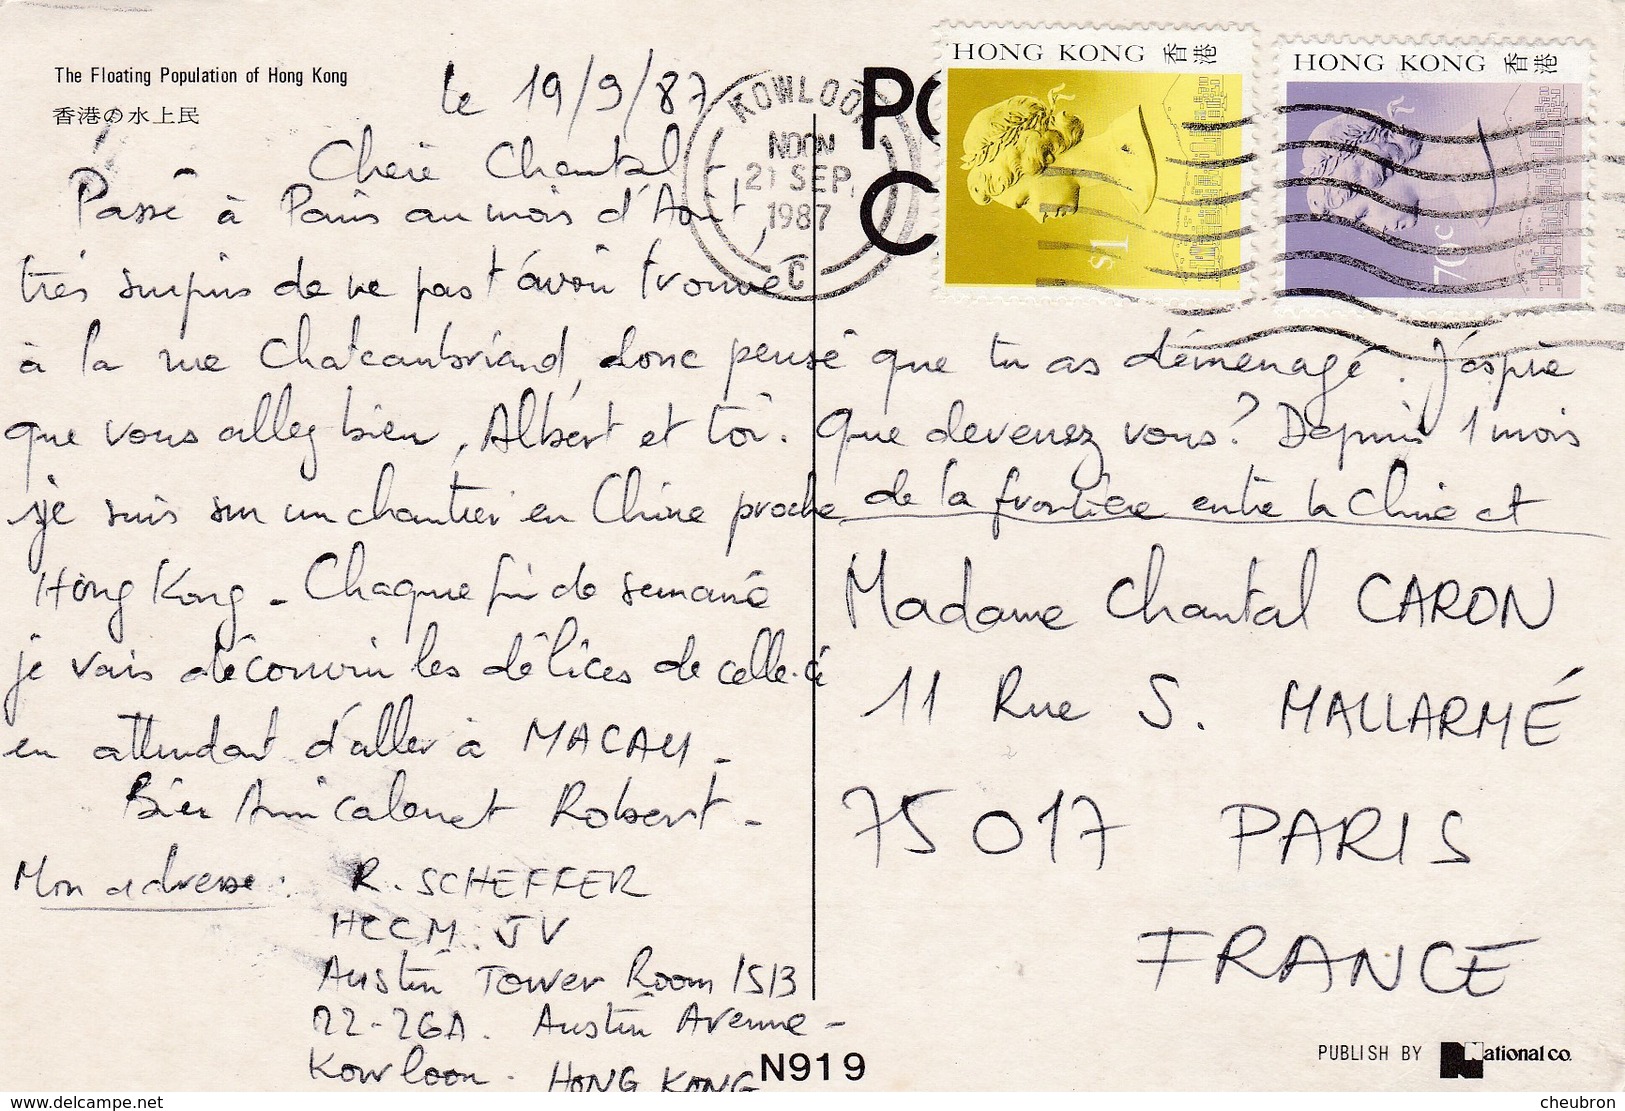 The Floating Population of Hong Kong
香港の水上民
le 19/9/87
Chère Chantal,
Passé à Paris au mois d'Août,
très surpris de ne pas t'avoir trouvé
à la rue Chateaubriand, donc pensé que tu as déménagé. J'espère
que vous allez bien, Albert et toi. Que devenez vous? Depuis 1 mois
je suis sur un chantier en Chine proche de la frontière entre la Chine et
Hong Kong - Chaque fin de semaine
je vais découvrir les délices de celle-ci
en attendant d'aller à MACAU -
Bien Amicalement Robert -
Mon adresse : R. SCHEFFER
HCCM JV
Austin Tower Room 1513
22-26A. Austin Avenue -
Kowloon. HONG KONG
KOWLOON
NOON
21 SEP
1987
C
PO
C
HONG KONG 香港
$1
HONG KONG 香港
70c
Madame Chantal CARON
11 Rue S. MALLARMÉ
75017 PARIS
FRANCE
N919
PUBLISH BY National co.
www.delcampe.net
cheubron